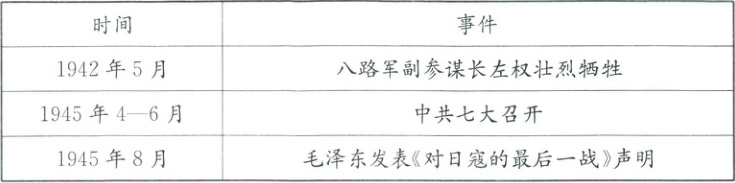 时间 事件
1942年5月 八路军副参谋长左权壮烈牺牲
1945年4—6月 中共七大召开
1945年8月 毛泽东发表《对日寇的最后一战》声明